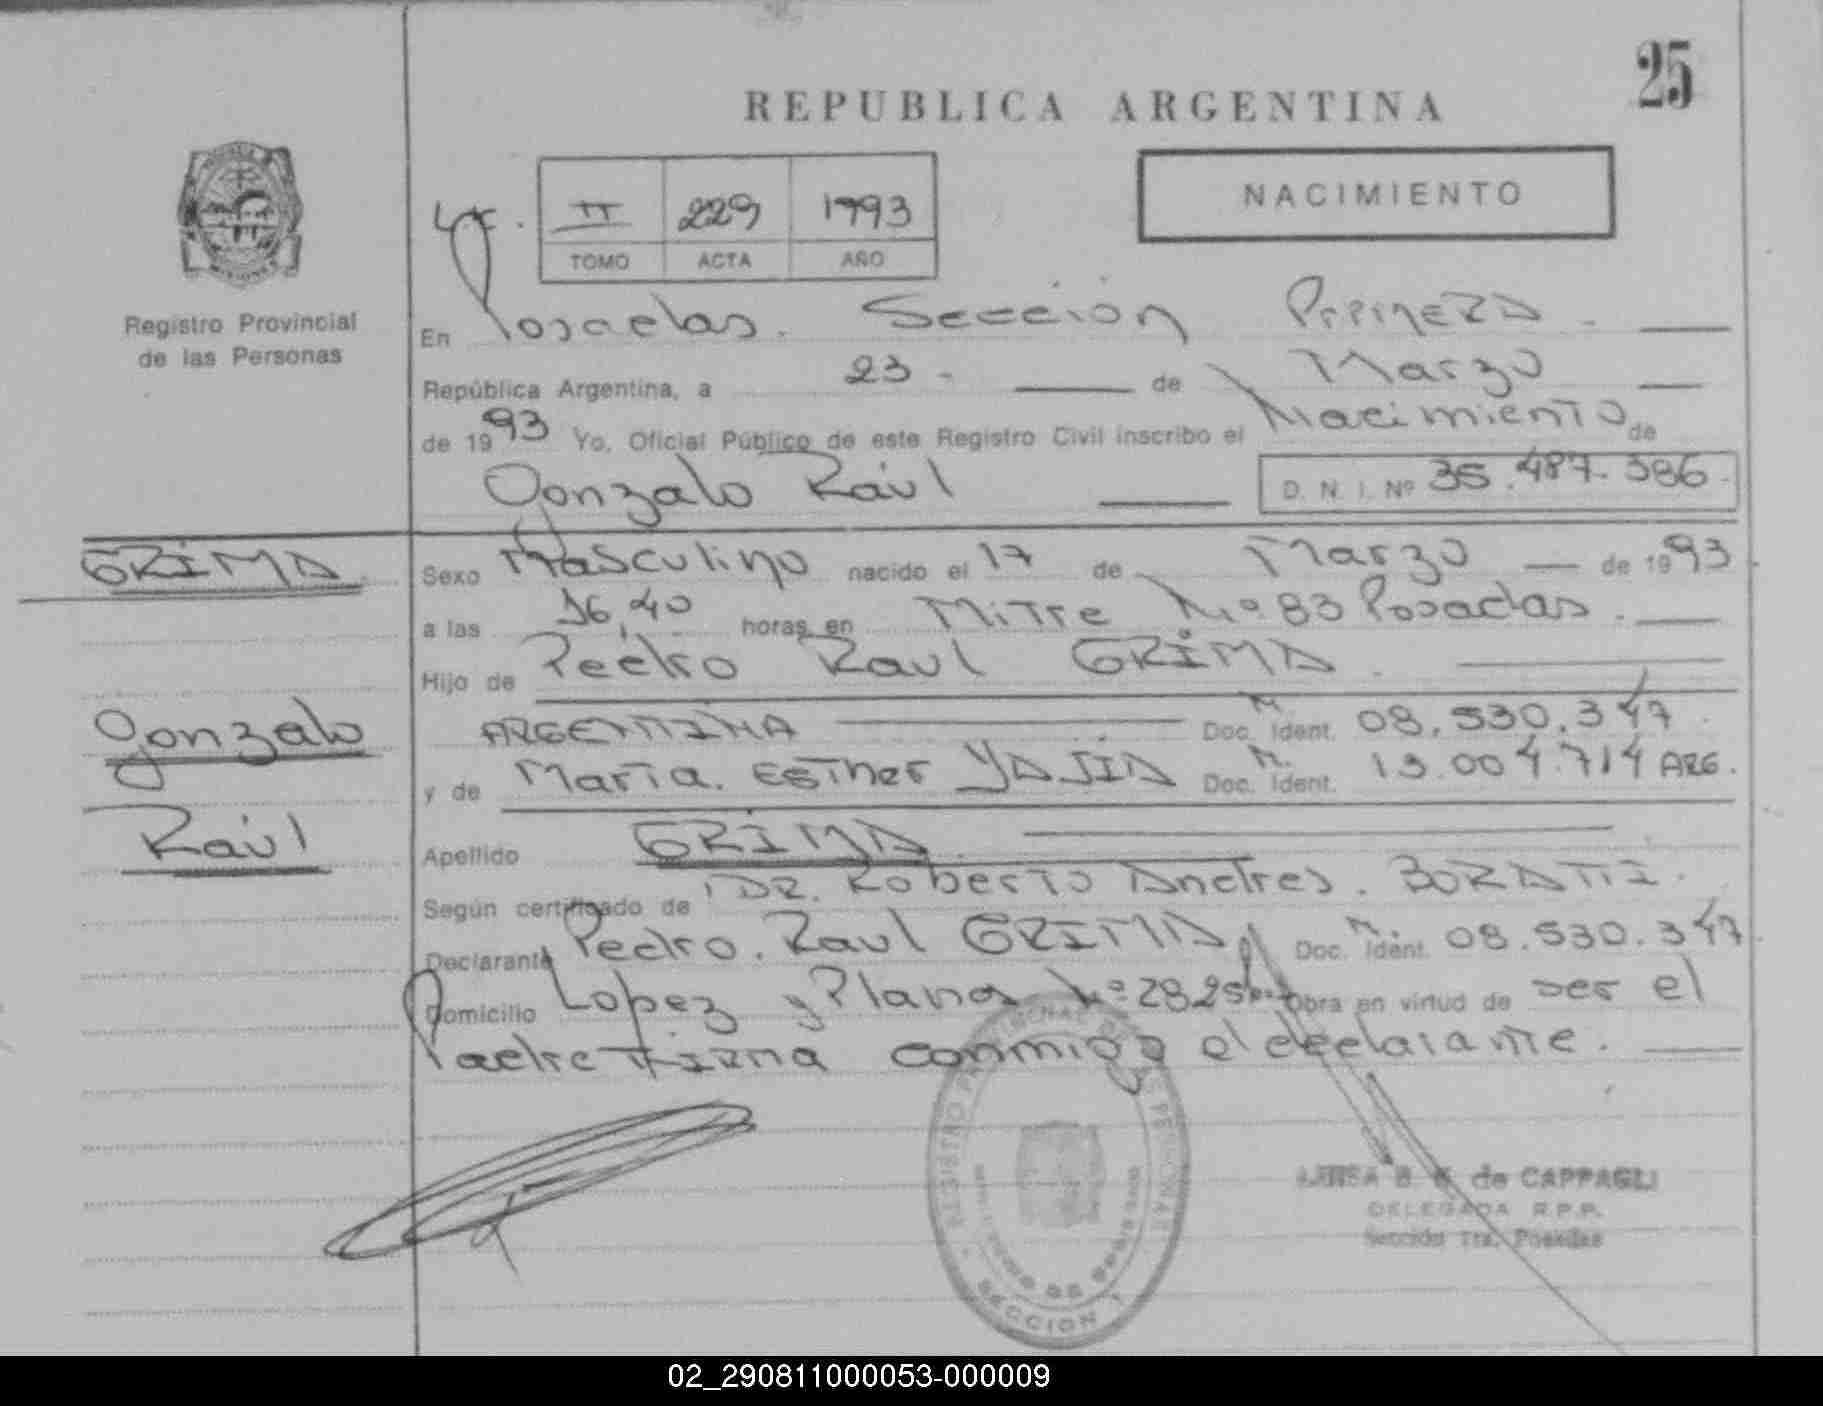 25
REPUBLICA ARGENTINA
NACIMIENTO
II 229 1993
TOMO ACTA AÑO
Registro Provincial
de las Personas
En Posadas. Sección Primera. —
República Argentina, a 23 — de Marzo —
de 1993 Yo, Oficial Público de este Registro Civil inscribo el Nacimiento de
Gonzalo Raúl — D. N. I. Nº 35.487.386.
GRIMA
Sexo Masculino nacido el 17 de Marzo — de 1993
a las 16,40 horas en Mitre Nº 83 Posadas. —
Hijo de Pedro Raul GRIMA. —
Gonzalo
ARGENTINA — Doc. M. Ident. 08.530.347
y de Maria. Esther YAJIA Doc. M. Ident. 13.004.714 ARG.
Raúl
Apellido GRIMA. —
Según certificado de DR. Roberto Andres. BORATTI.
Declarante Pedro. Raul GRIMA Doc. M. Ident. 08.530.347.
Domicilio Lopez y Planes Nº 2825 Obra en virtud de ser el
Padre Firma conmigo el declarante. —
REGISTRO PROVINCIAL DE LAS PERSONAS
SECCION 1
B. de CAPPAGLI
DELEGADA R.P.P.
Sección 1ra. Posadas
02_290811000053-000009